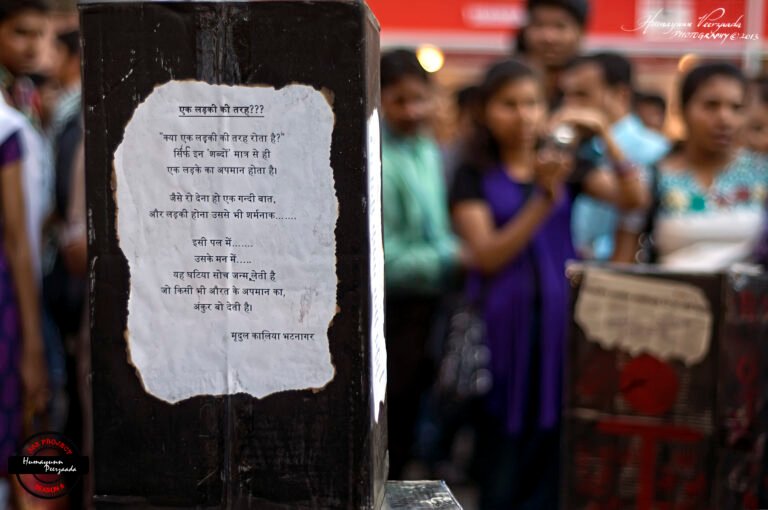 Humayunn Peerzaada
PHOTOGRAPHY © 2013
एक लड़की की तरह???
"क्या एक लड़की की तरह रोता है?"
सिर्फ इन 'शब्दों' मात्र से ही
एक लड़के का अपमान होता है।
जैसे रो देना हो एक गन्दी बात,
और लड़की होना उससे भी शर्मनाक.......
इसी पल में.......
उसके मन में.....
यह घटिया सोच जन्म लेती है
जो किसी भी औरत के अपमान का,
अंकुर बो देती है।
मृदुल कालिया भटनागर
Humayunn
Peerzaada